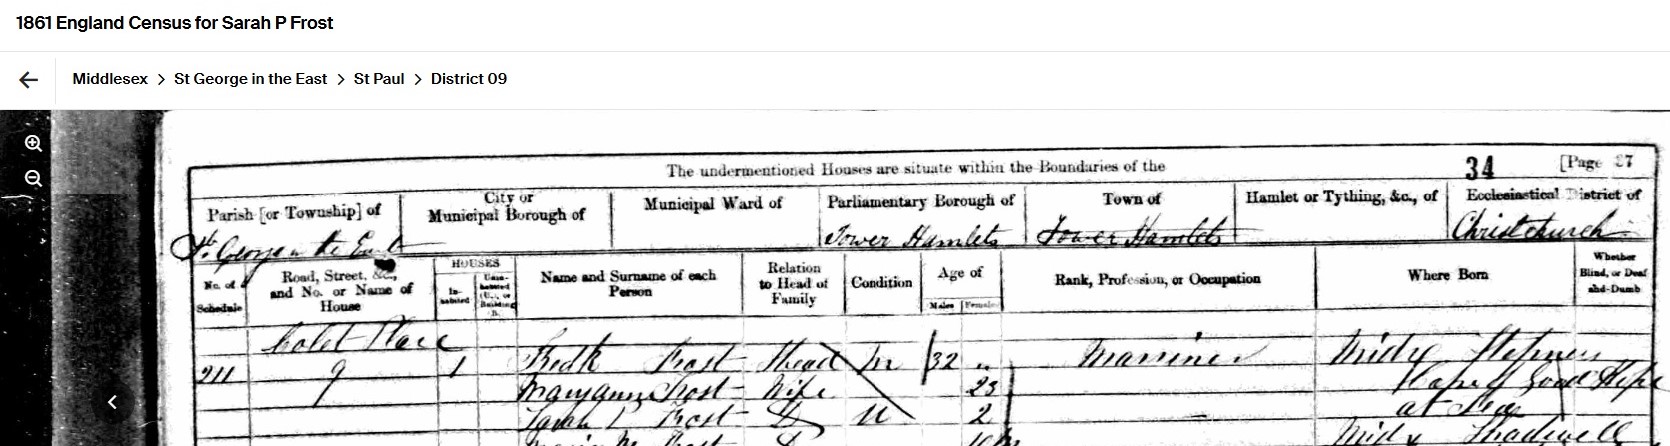 1861 England Census for Sarah P Frost
Middlesex > St George in the East > St Paul > District 09
The undermentioned Houses are situate within the Boundaries of the
34
[Page 27
Parish [or Township] of
City or Municipal Borough of
Municipal Ward of
Parliamentary Borough of
Town of
Hamlet or Tything, &c., of
Ecclesiastical District of
St. George in the East
Tower Hamlets
Tower Hamlets
Christchurch
No. of Schedule
Road, Street, &c., and No. or Name of House
HOUSES
In-habited
Unin-habited (U.), or Building B.
Name and Surname of each Person
Relation to Head of Family
Condition
Age of
Males
Females
Rank, Profession, or Occupation
Where Born
Whether Blind, or Deaf-and-Dumb
Colet Place
211 9 1 Fredk Frost Head M 32 Mariner Midx Stepney
Mary Ann Frost Wife 23 Cape of Good Hope
Sarah P Frost D U 2 at Sea
Maria M Frost D 10m Midx Shadwell